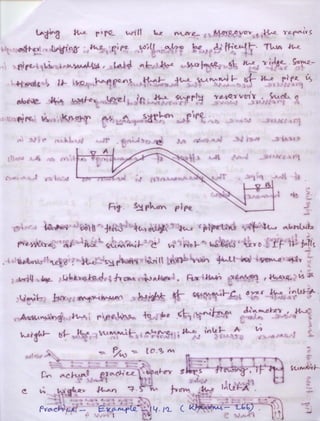 laying the pipe will be more. Moreover, the repairs
after laying the pipe will also be difficult. Thus the
pipe is usually laid at the surface of the ridge. Some-
times it so happens that the summit of the pipe is
above the water level in the supply reservoir. Such a
pipe is known as a syphon pipe
C
A
B
Fig syphon pipe
water will flow through the pipeline if the absolute
pressure at the summit C is not below zero. If it falls
below zero, the syphon will not run full as some air
will be liberated from water. For this reason there is a
limit for maximum height of summit C over the inlet A
Assuming the pipeline to be of uniform diameter the
height of the summit above the inlet A is
= Pa/w = 10.3 m
In actual practice water stops flowing, if the summit
C is higher than 7.5 m from the inlet A
Practice Example 4.12 ( 266)